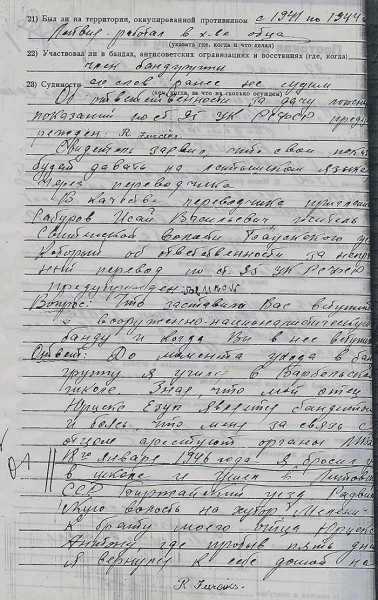 21) Был ли на территории, оккупированной противником с 1941 по 1944 г
Латвия - работал в х-ве отца
(указать где, когда и что делал)
22) Участвовал ли в бандах, антисоветских организациях и восстаниях (где, когда)
член бандгруппы
23) Судимости со слов ранее не судим
(кем, когда, за что на сколько осужден)
Об ответственности за дачу ложных
показаний по ст. 95 УК РСФСР преду-
режден: R.
Свидетель заявил, что свои пока
будет давать на латышском языке
через переводчика
В качестве переводчика приглашен
Исай Васильевич, житель
волости уезда
Который об ответственности за непра
ный перевод по ст. 95 УК РСФСР
предупрежден
Вопрос: Что заставило Вас вступить
в вооруженно-националистическую
банду и когда Вы в нее вступили
Ответ: До момента ухода в бан
группу я учился в
школе. Зная, что мой отец
Язеп является бандитом
и боясь, что меня за связь с
отцом арестуют органы
18го января 1946 года я бросил уч
в школе и ушел в Литовск
ССР Биржайский уезд
волость на хутор
к брату моего отца
Антону, где пробыв пять дней
я вернулся к себе домой на
R.